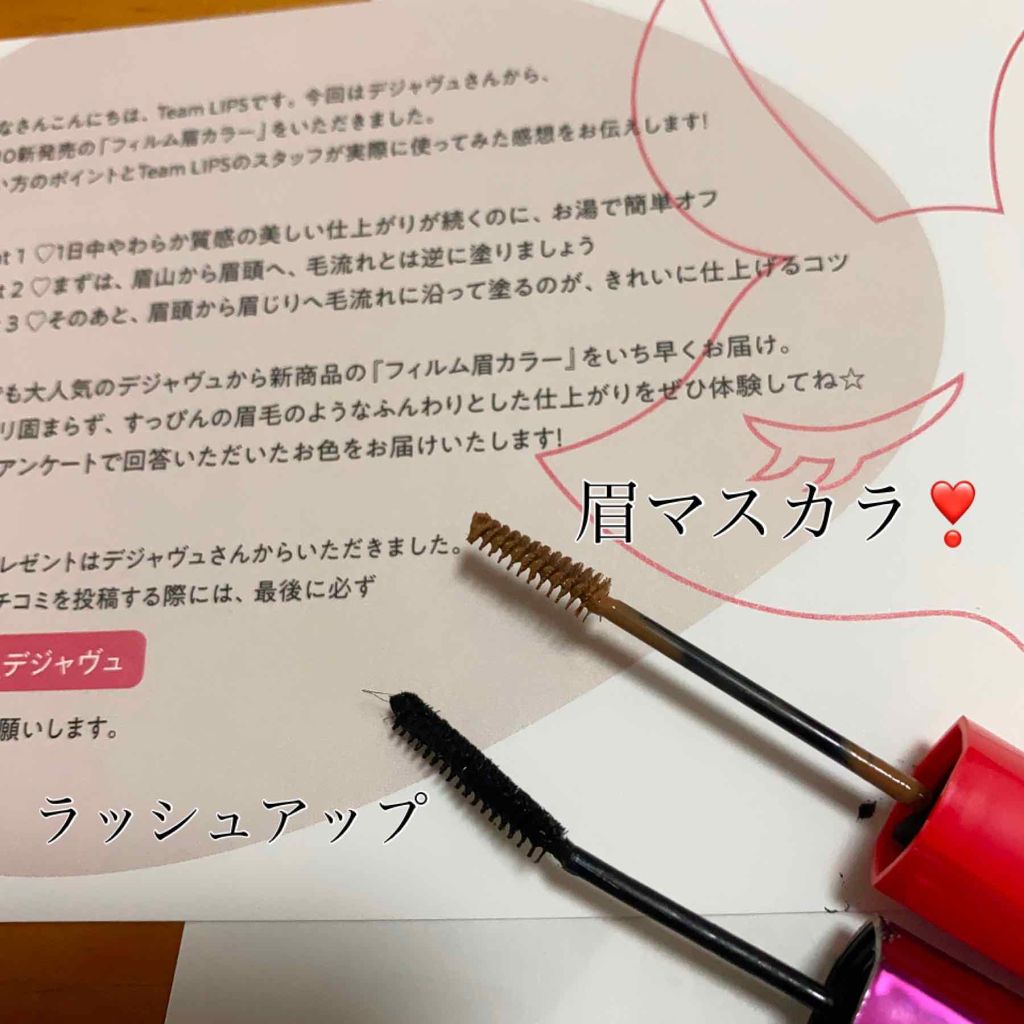 なさんこんにちは、Team LIPSです。今回はデジャヴュさんから、
10新発売の『フィルム眉カラー』をいただきました。
い方のポイントとTeam LIPSのスタッフが実際に使ってみた感想をお伝えします!
nt 1 ♡1日中やわらか質感の美しい仕上がりが続くのに、お湯で簡単オフ
t 2 ♡まずは、眉山から眉頭へ、毛流れとは逆に塗りましょう
3 ♡そのあと、眉頭から眉じりへ毛流れに沿って塗るのが、きれいに仕上げるコツ
でも大人気のデジャヴュから新商品の『フィルム眉カラー』をいち早くお届け。
リ固まらず、すっぴんの眉毛のようなふんわりとした仕上がりをぜひ体験してね☆
アンケートで回答いただいたお色をお届けいたします!
眉マスカラ❣
レゼントはデジャヴュさんからいただきました。
チコミを投稿する際には、最後に必ず
デジャヴュ
願いします。
ラッシュアップ